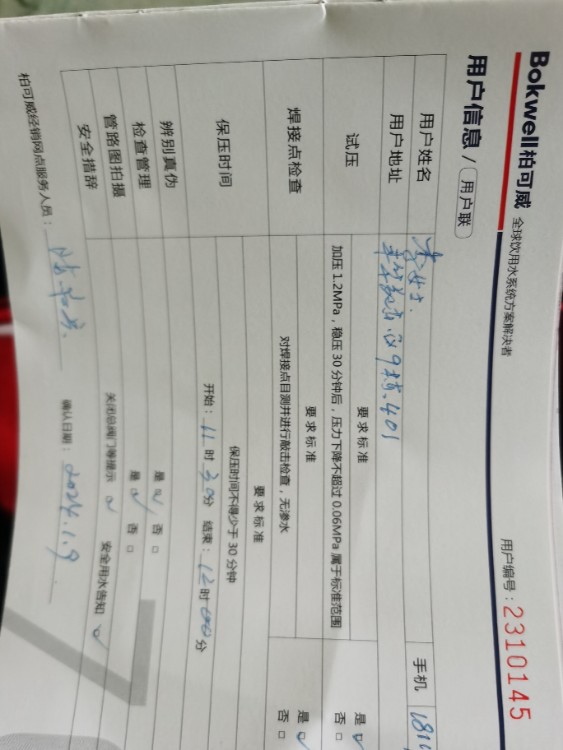 Bokwell柏可威 全球饮用水系统方案解决者
用户编号：2310145
用户信息 / 用户联
用户姓名 李女士. 手机 181
用户地址 9栋.401
试压 要求标准
加压 1.2MPa，稳压 30 分钟后，压力下降不超过 0.06MPa 属于标准范围 是 否
焊接点检查 要求标准
对焊接点目测并进行敲击检查，无渗水 是 否
保压时间 要求标准
保压时间不得少于 30 分钟
开始：11 时 30 分 结束：12 时 00 分
辨别真伪 是 否
检查管理 是 否
管路图拍摄
安全措辞 关闭总阀门等提示 安全用水告知
柏可威经销网点服务人员： 确认日期：2024.1.9